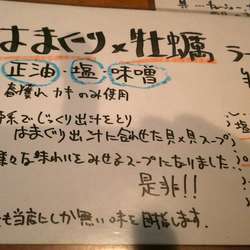 はまぐり×牡蠣 ラー
正油 塩 味噌
カキのみ使用
でじっくり出汁をとり
はまぐり出汁に合わせた貝×貝スープ
々な味わいをみせるスープになりました!!
是非!!
も当店にしか無い味を目指します.